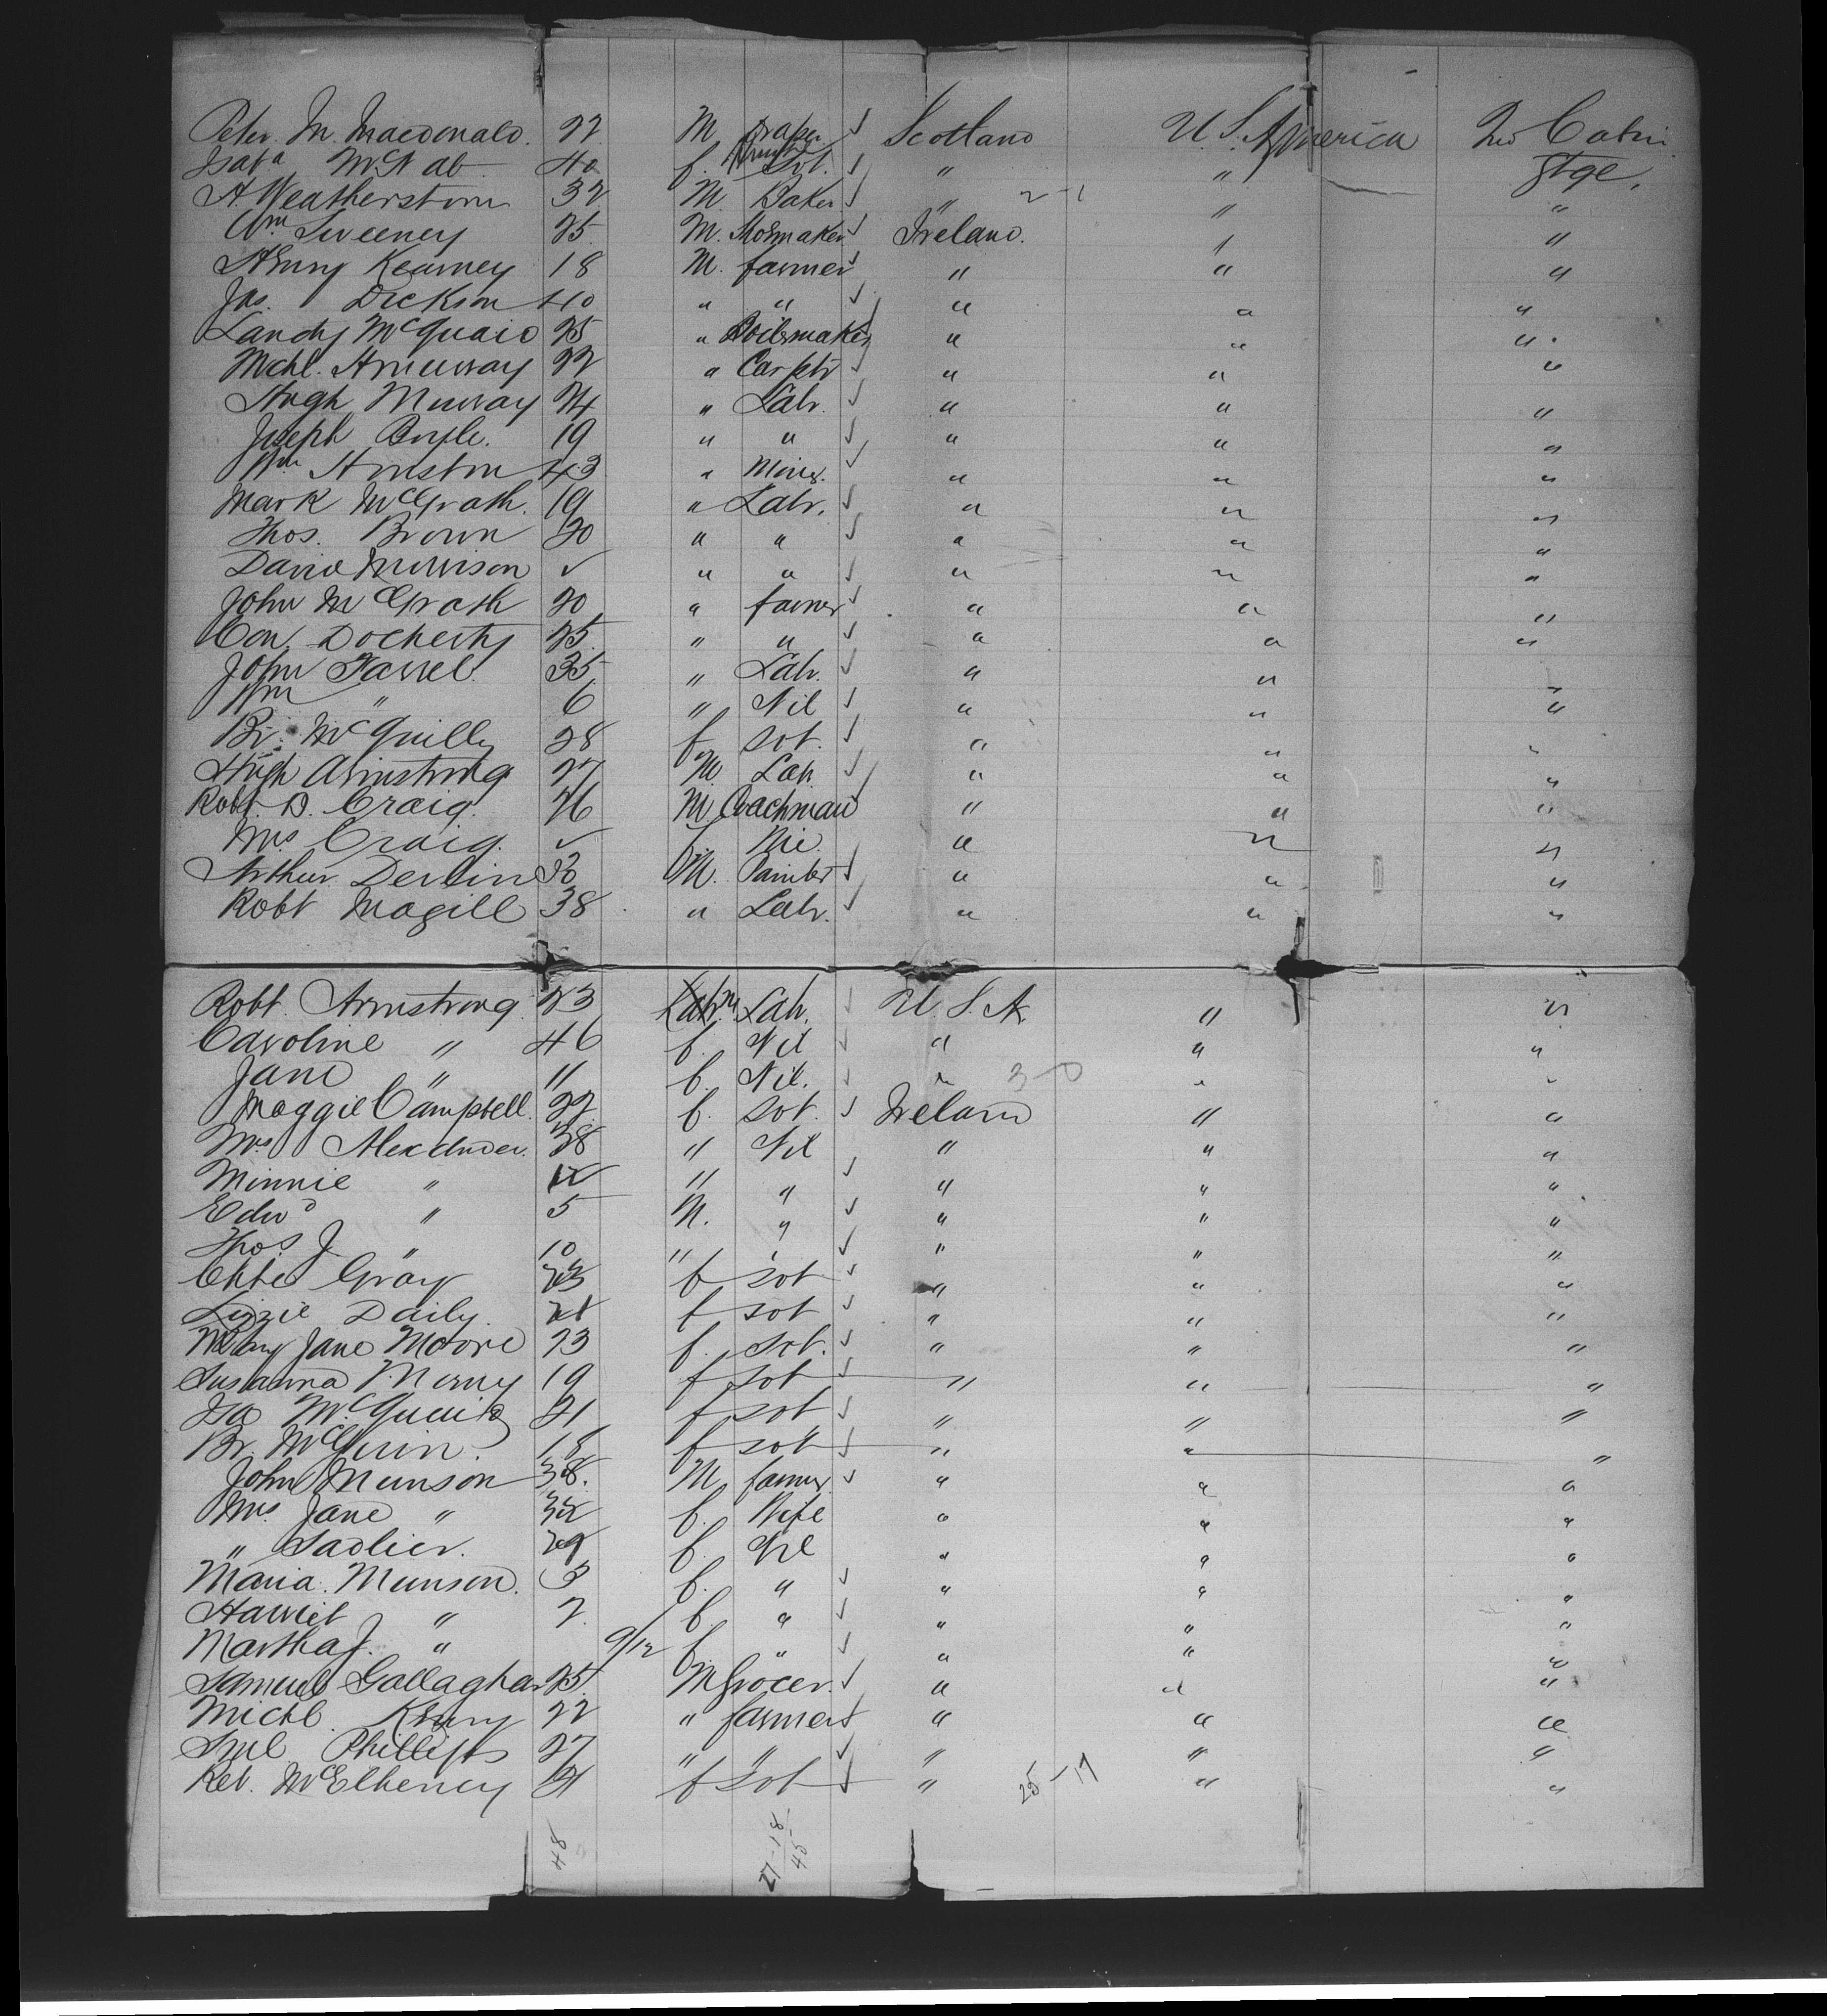 Peter M. Macdonald. 22 M Draper Scotland U. S. America 2nd Cabin
Isabᵃ McNab 40 f. Svt. " " Stge.
A Weatherston 32 M. Baker " " "
Wm Sweeney 25 M. Shoemaker Ireland. " "
Henry Kearney 18 M. farmer " " "
Jas. Dickson 40 " " " " "
Sandy McQuaid 25 " Boilermaker " " "
Michl. 22 " Carptr " " "
Hugh Murray 24 " Labr. " " "
Joseph Boyle. 19 " " " " "
Wm Houston 43 " Miner. " " "
Mark McGrath. 19 " Labr. " " "
Thos. Brown 20 " " " " "
David Morrison ✓ " " " " "
John McGrath 20 " farmer " " "
Con. Docherty 25 " " " " "
John Farrel 35 " Labr. " " "
Wm " 6 " Nil " " "
Br. McQuilly 28 f svt. " " "
Hugh Armstrong 27 M Lab " " "
Robt. D. Craig. 26 M. Coachman " " "
Mrs Craig. ✓ f. " " "
Arthur Devlin 20 M. Painter " " "
Robt Magill 38 " Labr. " " "
Robt. Armstrong 23 Labr. M Labr. U. S. A. " "
Caroline " 46 f. Nil " " "
Jane " 11 f. Nil. " 3-0 " "
Maggie Campbell. 22 f. svt. Ireland " "
Mrs Alexander. 38 " Nil " " "
Minnie " 12 " " " " "
Edwd " 5 M. " " " "
Thos J " 10 " " " " "
Gray 23 f svt " " "
Lizzie Daily. 21 f svt " " "
Mary Jane Moore 23 f. svt. " " "
Susanna 19 f svt " " "
Isa McQuaid 21 f svt " " "
Br. McGuin. 18 f svt " " "
John Munson 38. M. farmer " " "
Mrs Jane " 32 f. Wife " " "
" Sadlier. 29 f. Nil " " "
Maria. Munson. 3 f. " " " "
Harriet " 2. f. " " " "
Martha J. " 9/12 f " " " "
Samuel Gallagher 25. M Grocer. " " "
Michl Kenny 22 " farmer " " "
Saml Phillips 27 " " " " "
Reb. McElheney 21 f svt " 25-17 " "
48 27-18
45